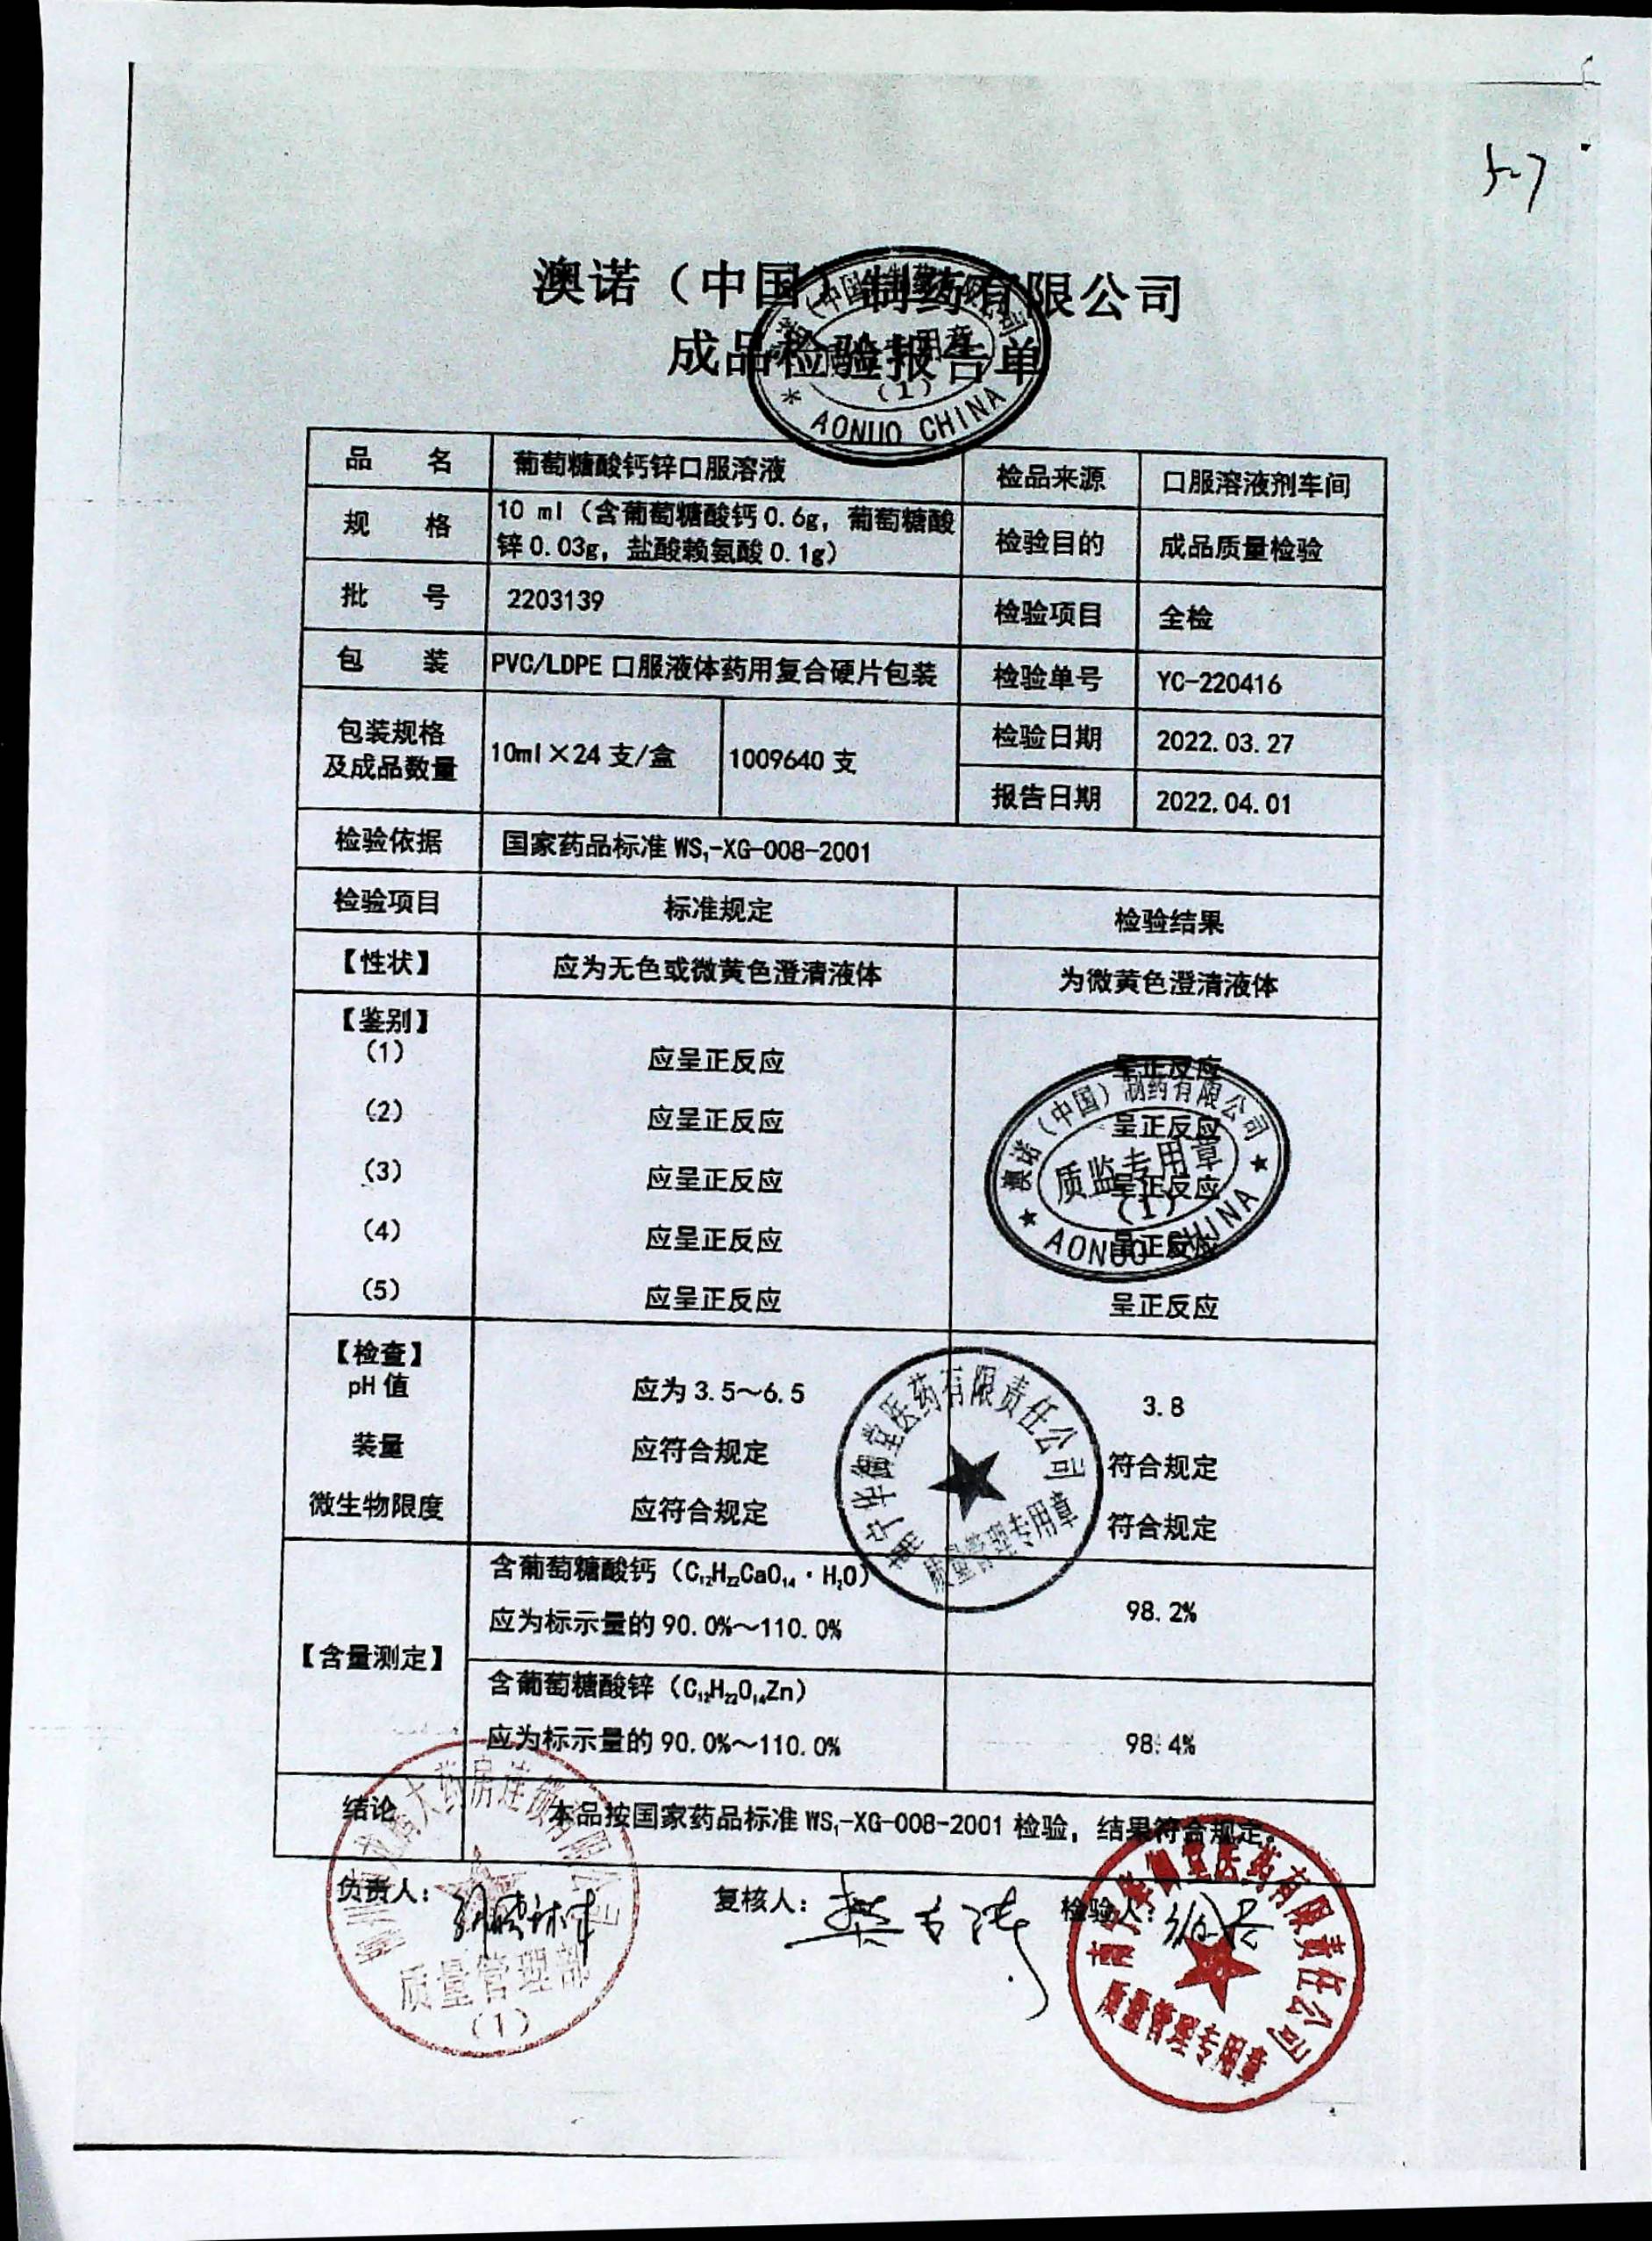 澳诺（中国）制药有限公司
成品检验报告单
品 名 葡萄糖酸钙锌口服溶液 检品来源 口服溶液剂车间
规 格 10 ml（含葡萄糖酸钙0.6g，葡萄糖酸
锌0.03g，盐酸赖氨酸0.1g） 检验目的 成品质量检验
批 号 2203139 检验项目 全检
包 装 PVC/LDPE 口服液体药用复合硬片包装 检验单号 YC-220416
包装规格
及成品数量 10ml×24 支/盒 1009640 支 检验日期 2022.03.27
报告日期 2022.04.01
检验依据 国家药品标准 WS₁-XG-008-2001
检验项目 标准规定 检验结果
【性状】 应为无色或微黄色澄清液体 为微黄色澄清液体
【鉴别】
（1） 应呈正反应 呈正反应
（2） 应呈正反应 呈正反应
（3） 应呈正反应 呈正反应
（4） 应呈正反应 呈正反应
（5） 应呈正反应 呈正反应
澳诺（中国）制药有限公司
质监专用章
（1）
AONUO CHINA
【检查】
pH 值 应为 3.5～6.5 3.8
装量 应符合规定 符合规定
微生物限度 应符合规定 符合规定
医药有限责任公司
质量管理专用章
【含量测定】
含葡萄糖酸钙（C₁₂H₂₂CaO₁₄・H₂O）
应为标示量的 90.0%～110.0% 98.2%
含葡萄糖酸锌（C₁₂H₂₂O₁₄Zn）
应为标示量的 90.0%～110.0% 98.4%
结论 本品按国家药品标准 WS₁-XG-008-2001 检验，结果符合规定。
负责人： 复核人： 检验人：
质量管理部
（1）
医药有限责任公司
质量管理专用章